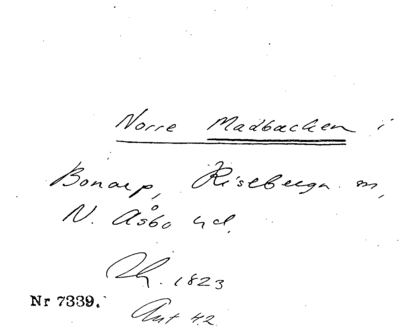 Norre Madbacken i
Bonarp, Riseberga sn,
N. Åsbo hd.
Rh. 1823
Nr 7339.
Ant 42